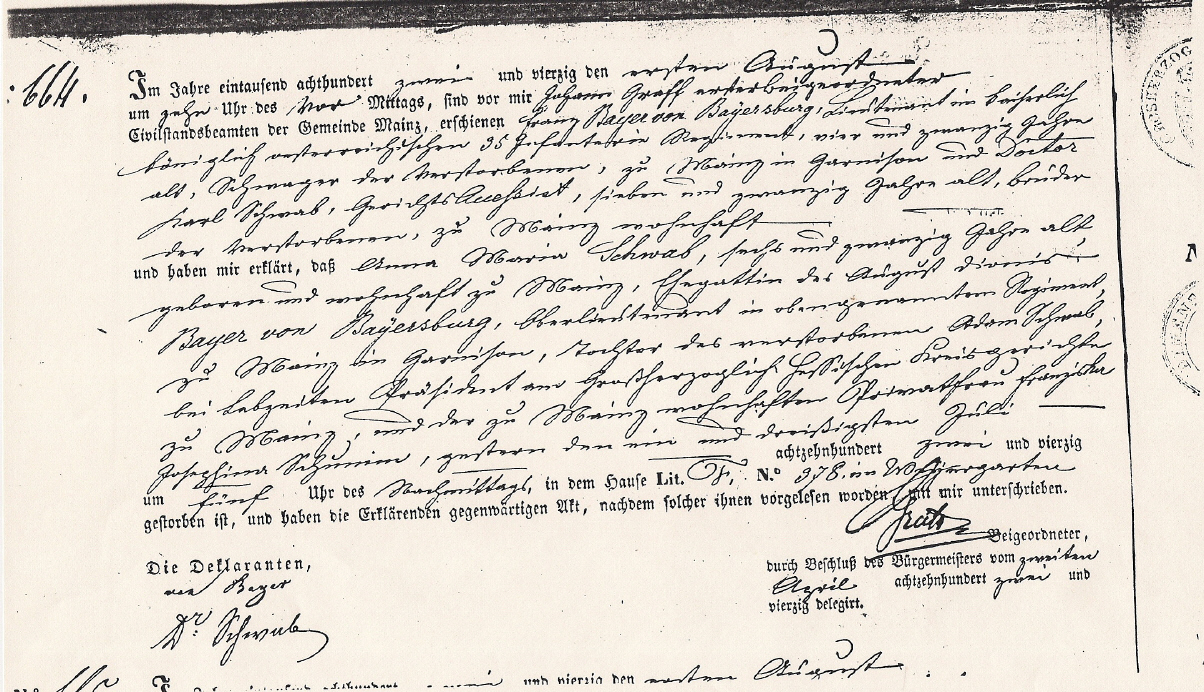 664.
Im Jahre eintausend achthundert zwei und vierzig den ersten August
um zehn Uhr des Vor Mittags, sind vor mir Johann Graff ersterbeigeordneter
Civilstandsbeamten der Gemeinde Mainz, erschienen Franz Bayer von Bayersburg, Lieutenant im kaiserlich
königlich oesterreichischen 35 Infanterie Regiment, vier und zwanzig Jahre
alt, Schwager der Verstorbenen, zu Mainz in Garnison und Doctor
Karl Schwab, Gerichts Accessist, sieben und zwanzig Jahre alt, bruder
der Verstorbenen, zu Mainz wohnhaft
und haben mir erklärt, daß Anna Maria Schwab, sechs und zwanzig Jahre alt,
geboren und wohnhaft zu Mainz, Ehegattin des August Dionis
Bayer von Bayersburg, Oberlieutenant in obengenanntem Regiment,
zu Mainz in Garnison, Tochter des verstorbenen Adam Schwab,
bei Lebzeiten Präsident am Großherzoglich Hessischen Kreisgerichte
zu Mainz, und der zu Mainz wohnhaften Privatfrau Franziska
Josephina, gestern den ein und dreißigsten Juli
achtzehnhundert zwei und vierzig
um fünf Uhr des Nachmittags, in dem Hause Lit. F, N.º 378. im
gestorben ist, und haben die Erklärenden gegenwärtigen Akt, nachdem solcher ihnen vorgelesen worden, mit mir unterschrieben.
Beigeordneter,
Die Deklaranten,
durch Beschluß des Bürgermeisters vom zweiten
April achtzehnhundert zwei und
vierzig delegirt.
von Bayer
Dr. Schwab
Im Jahre eintausend achthundert zwei und vierzig den ersten August